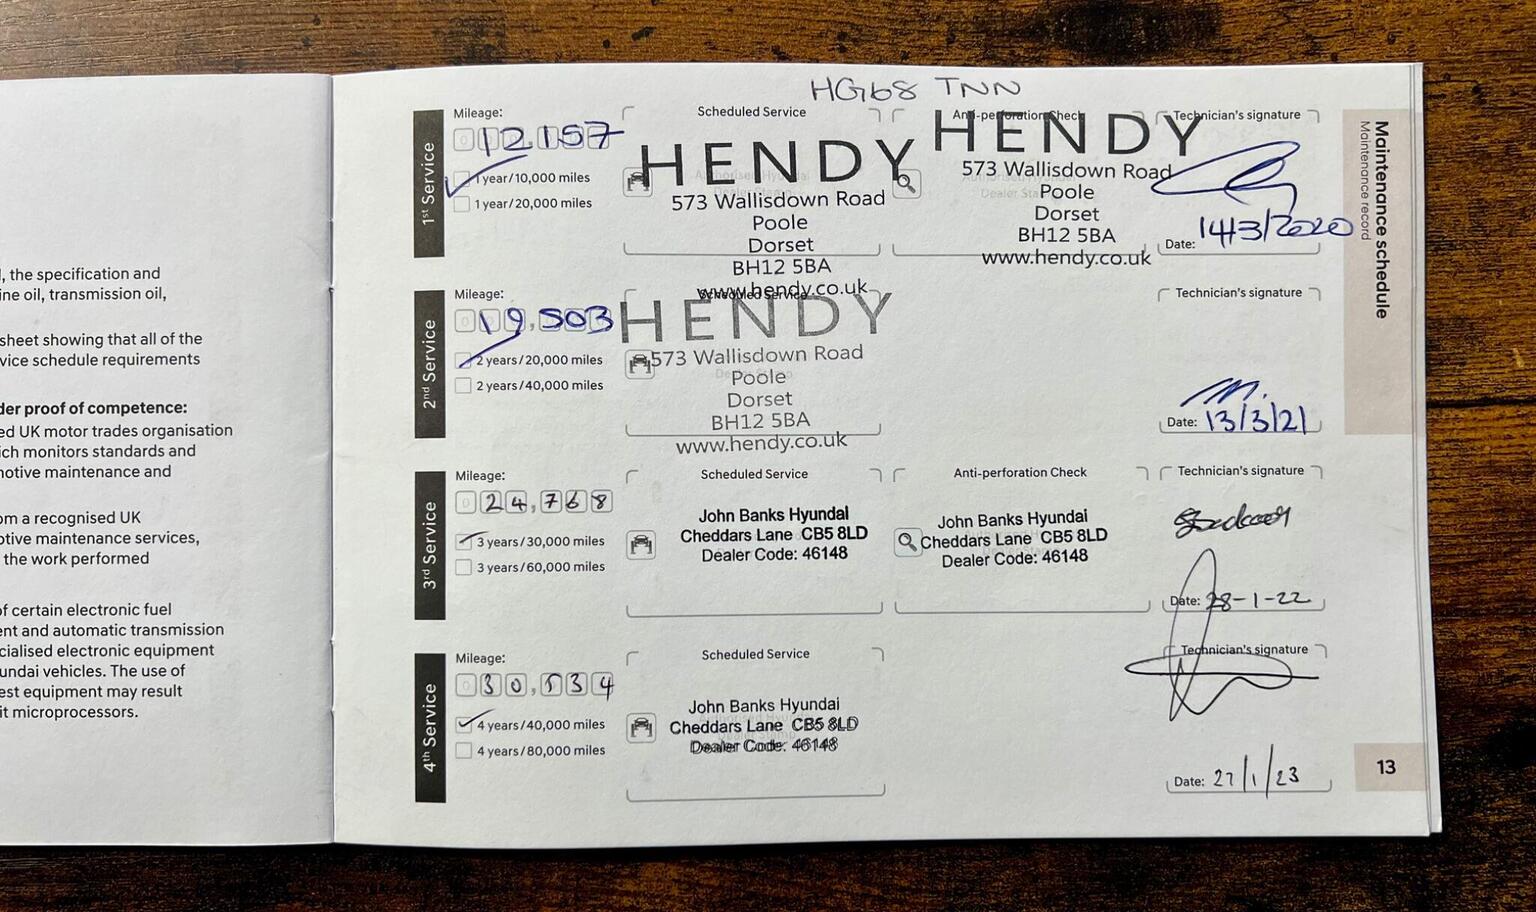 HG68 TNN
, the specification and
ine oil, transmission oil,
sheet showing that all of the
vice schedule requirements
der proof of competence:
ed UK motor trades organisation
ich monitors standards and
motive maintenance and
om a recognised UK
otive maintenance services,
the work performed
of certain electronic fuel
ent and automatic transmission
cialised electronic equipment
undai vehicles. The use of
est equipment may result
it microprocessors.
1st Service
Mileage:
12,157
1 year/10,000 miles
1 year/20,000 miles
Scheduled Service
HENDY
573 Wallisdown Road
Poole
Dorset
BH12 5BA
www.hendy.co.uk
Anti-perforation Check
HENDY
573 Wallisdown Road
Poole
Dorset
BH12 5BA
www.hendy.co.uk
Technician's signature
Date: 14/3/2020
2nd Service
Mileage:
19,503
2 years/20,000 miles
2 years/40,000 miles
Scheduled Service
HENDY
573 Wallisdown Road
Poole
Dorset
BH12 5BA
www.hendy.co.uk
Technician's signature
Date: 13/3/21
3rd Service
Mileage:
24,768
3 years/30,000 miles
3 years/60,000 miles
Scheduled Service
John Banks Hyundai
Cheddars Lane CB5 8LD
Dealer Code: 46148
Anti-perforation Check
John Banks Hyundai
Cheddars Lane CB5 8LD
Dealer Code: 46148
Technician's signature
Date: 28-1-22
4th Service
Mileage:
4 years/40,000 miles
4 years/80,000 miles
Scheduled Service
John Banks Hyundai
Cheddars Lane CB5 8LD
Dealer Code: 46148
Technician's signature
Date: 27/1/23
Maintenance schedule
Maintenance record
13